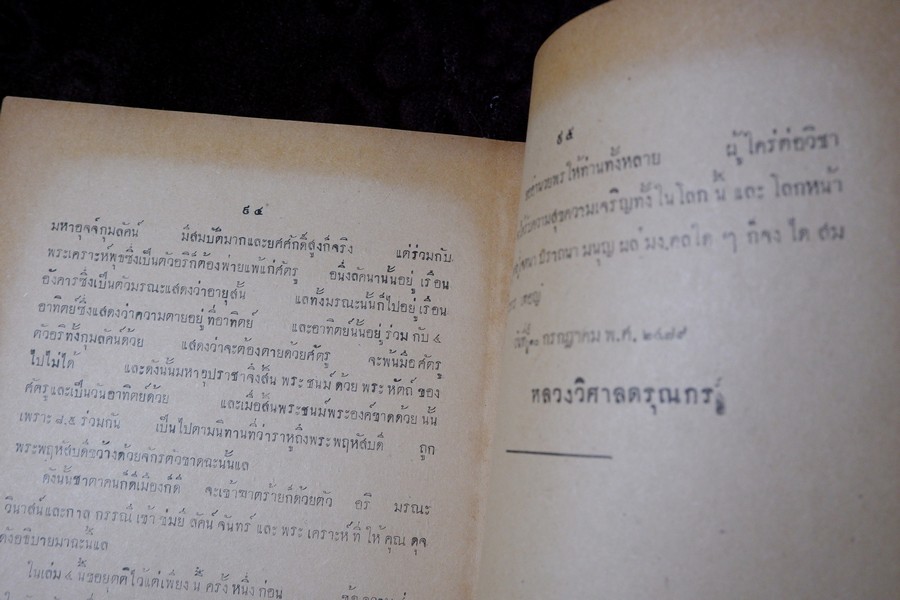 ๙๔
มหาอุจจ์กุมลัคน์ มีสมบัติมากและยศศักดิ์สูงก็จริง แต่ร่วมกับ
พระเคราะห์พุธซึ่งเป็นตัวอริก็ต้องพ่ายแพ้แก่ศัตรู อนึ่งลัคนานั้นอยู่เรือน
อังคารซึ่งเป็นตัวมรณะแสดงว่าอายุสั้น แลทั้งมรณะนั้นก็ไปอยู่เรือน
อาทิตย์ซึ่งแสดงว่าความตายอยู่ที่อาทิตย์ และอาทิตย์นั้นอยู่ร่วมกับ ๔
ตัวอริทั้งกุมลัคน์ด้วย แสดงว่าจะต้องตายด้วยศัตรู จะพ้นมือศัตรู
ไปไม่ได้ และดังนั้นมหาอุปราชาจึงสิ้นพระชนม์ด้วยพระหัตถ์ของ
ศัตรูและเป็นวันอาทิตย์ด้วย และเมื่อสิ้นพระชนม์พระองค์ขาดด้วยนั้น
เพราะ ๘.๕ ร่วมกัน เป็นไปตามนิทานที่ว่าราหูถึงพระพฤหัสบดี ถูก
พระพฤหัสบดีขว้างด้วยจักรตัวขาดฉะนั้นแล
ดังนั้นชาตาคนก็ดีเมืองก็ดี จะเข้าฆาตร้ายก็ด้วยตัว อริ มรณะ
วินาสน์และกาลกรรณีเข้า ลัคน์ จันทร์ และ พระเคราะห์ที่ให้คุณ ดุจ
ดังอธิบายมาฉะนั้นแล
ในเล่ม ๔ นี้ขอยุตติไว้แต่เพียงนี้ครั้งหนึ่งก่อน
๙๕
ขออำนวยพรให้ท่านทั้งหลาย ผู้ใคร่ต่อวิชา
ความสุขความเจริญทั้งในโลกนี้ และ โลกหน้า
ปรารถนา มนุญ ผล มงคลใด ๆ ก็จงได้สม
กรกฎาคม พ.ศ. ๒๔๗๙
หลวงวิศาลดรุณกร